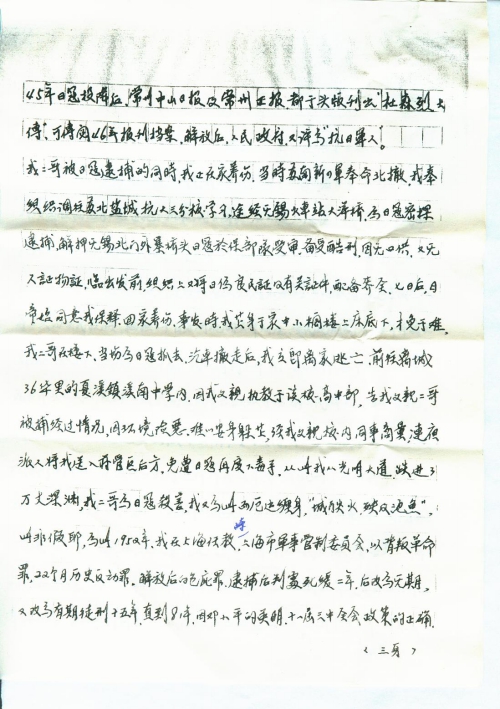 45年日寇投降后，常州中山日报及常州正报都于头版刊出"杜森烈士
传"，可传阅46年报刊档案，解放后，人民政府又评为"抗日军人"。
我二哥被日寇逮捕的同时，我正在庆养伤，当时苏南新四军奉命北撤，我奉
组织调往苏北盐城抗大三分校学习，途经无锡火车站大洋桥，为日寇密探
逮捕，解押无锡北门外暴桥头日寇宪兵部受审，备受酷刑，因无口供，又无
人证物证，临出发前，组织上又将日伪良民证及有关证件，配备齐全，七日后，日
帝始同意我保释，回家养伤，事发时，我只身于家中小榈楼上床底下，才免于难，
我二哥在楼下，当场为日寇抓去，汽车撤走后，我立即离家逃亡，前往离城
36华里的夏溪镇溪南中学内，因我父亲，执教于该校，高中部，告我父亲二哥
被捕经过情况，因环境险恶，难以安身躲生，经我父亲校内同事商量，连夜
派人将我送入蒋管区后方，免遭日寇再度下毒手，从此我从光明大道，跌进了
万丈深渊，我二哥为日寇杀害，我又为此西厄运缠身，"城门失火，殃及池鱼"，
此非假即，为此1952年，我在上海任教，上海市军事管制委员会，以背叛革命
罪，22个月历史反动罪，解放后的包庇罪，逮捕后判处死缓二年，后改为无期，
又改为有期徒刑十五年，直到81年，因邓小平的英明，十一届三中全会政策的正确，
（三页）